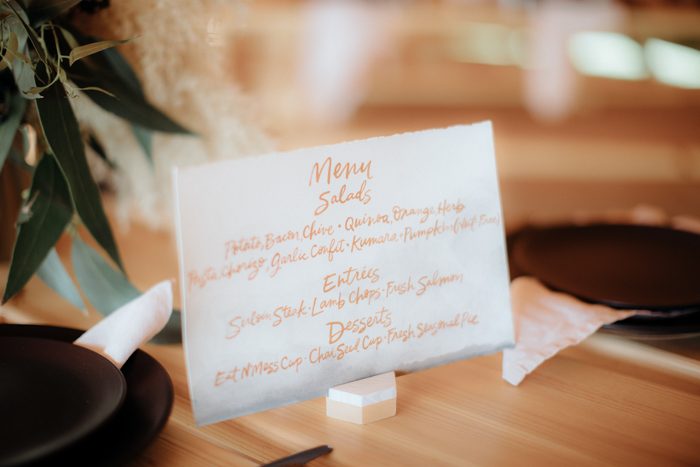 Menu
Salads
Potato, Bacon, Chive • Quinoa, Orange, Herb
Pasta, Chorizo, Garlic Confit • Kumara • Pumpkin (Nut Free)
Entrées
Sirloin Steak • Lamb Chops • Fresh Salmon
Desserts
Eat N Mess Cup • Chai Seed Cup • Fresh Seasonal Pie